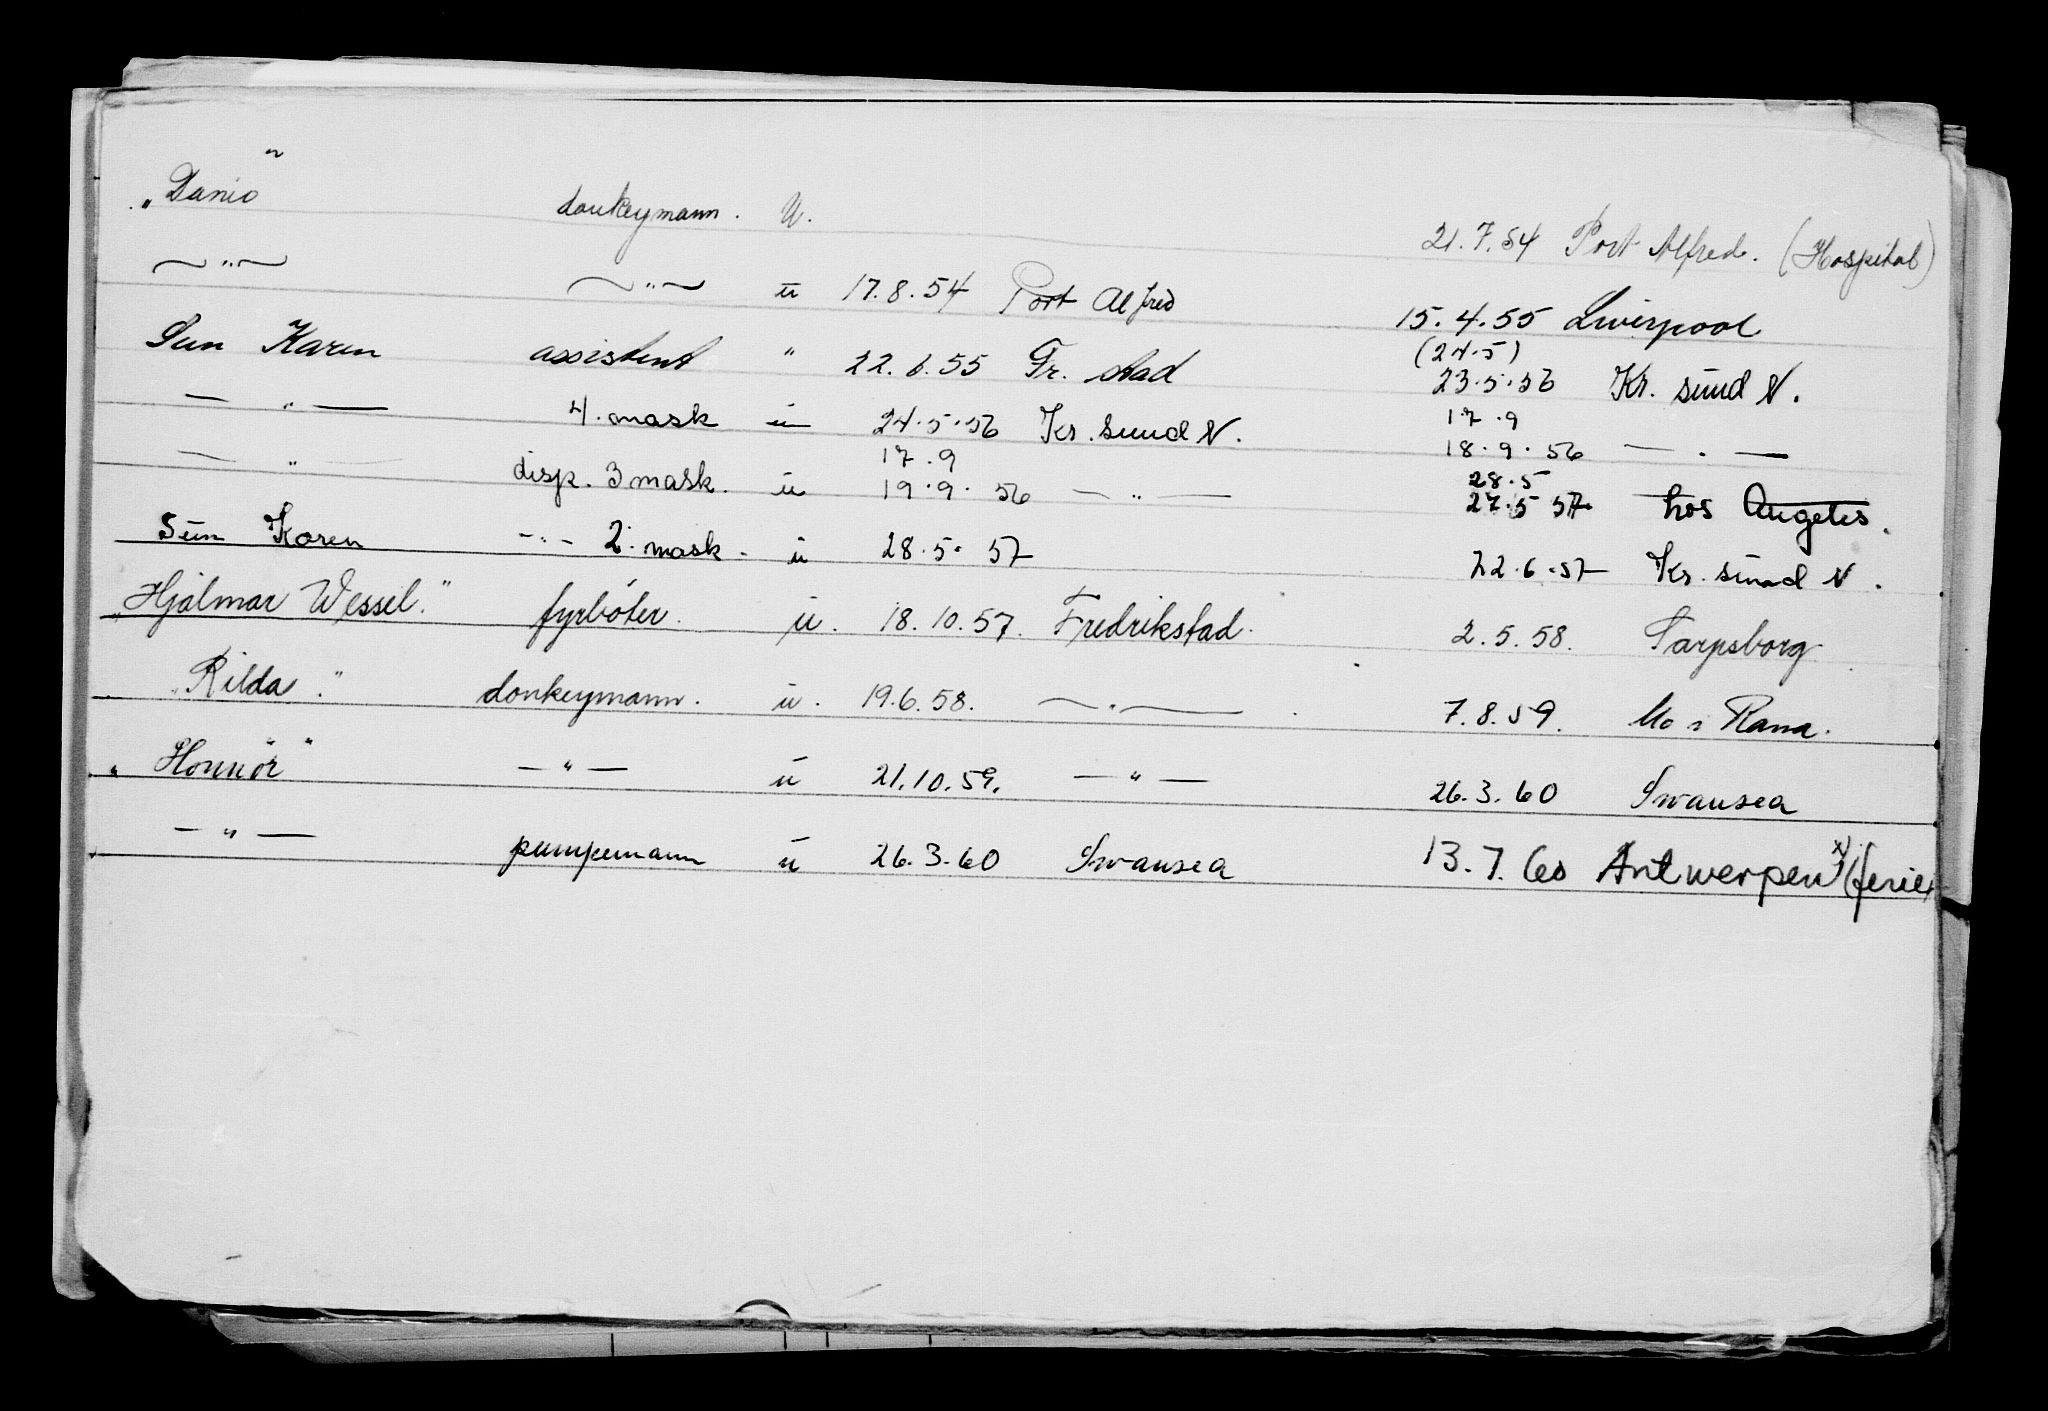 "Danio" donkeymann. U. 21.7.54 Port Alfred. (Hospital)
— " — — " — u 17.8.54 Port Alfred 15.4.55 Liverpool
(24.5)
Sun Karen assistent " 22.6.55 Fr. stad 23.5.56 Kr. sund N.
— " — 4. mask u 24.5.56 Kr. sund N. 17.9
17.9 18.9.56 — " —
— " — disp. 3 mask. u 19.9.56 — " — 28.5
27.5 57 Los Angeles.
Sun Karen — " — 2. mask. u 28.5.57 22.6.57 Kr. sund N.
"Hjalmar Wessel." fyrbøter. u. 18.10.57. Fredrikstad. 2.5.58. Sarpsborg
"Rilda." donkeymann. u. 19.6.58. — " — 7.8.59. Mo i Rana.
"Honnör" — " — u 21.10.59. — " — 26.3.60 Swansea
— " — pumpemann u 26.3.60 Swansea 13.7.60 Antwerpen x) (ferie)